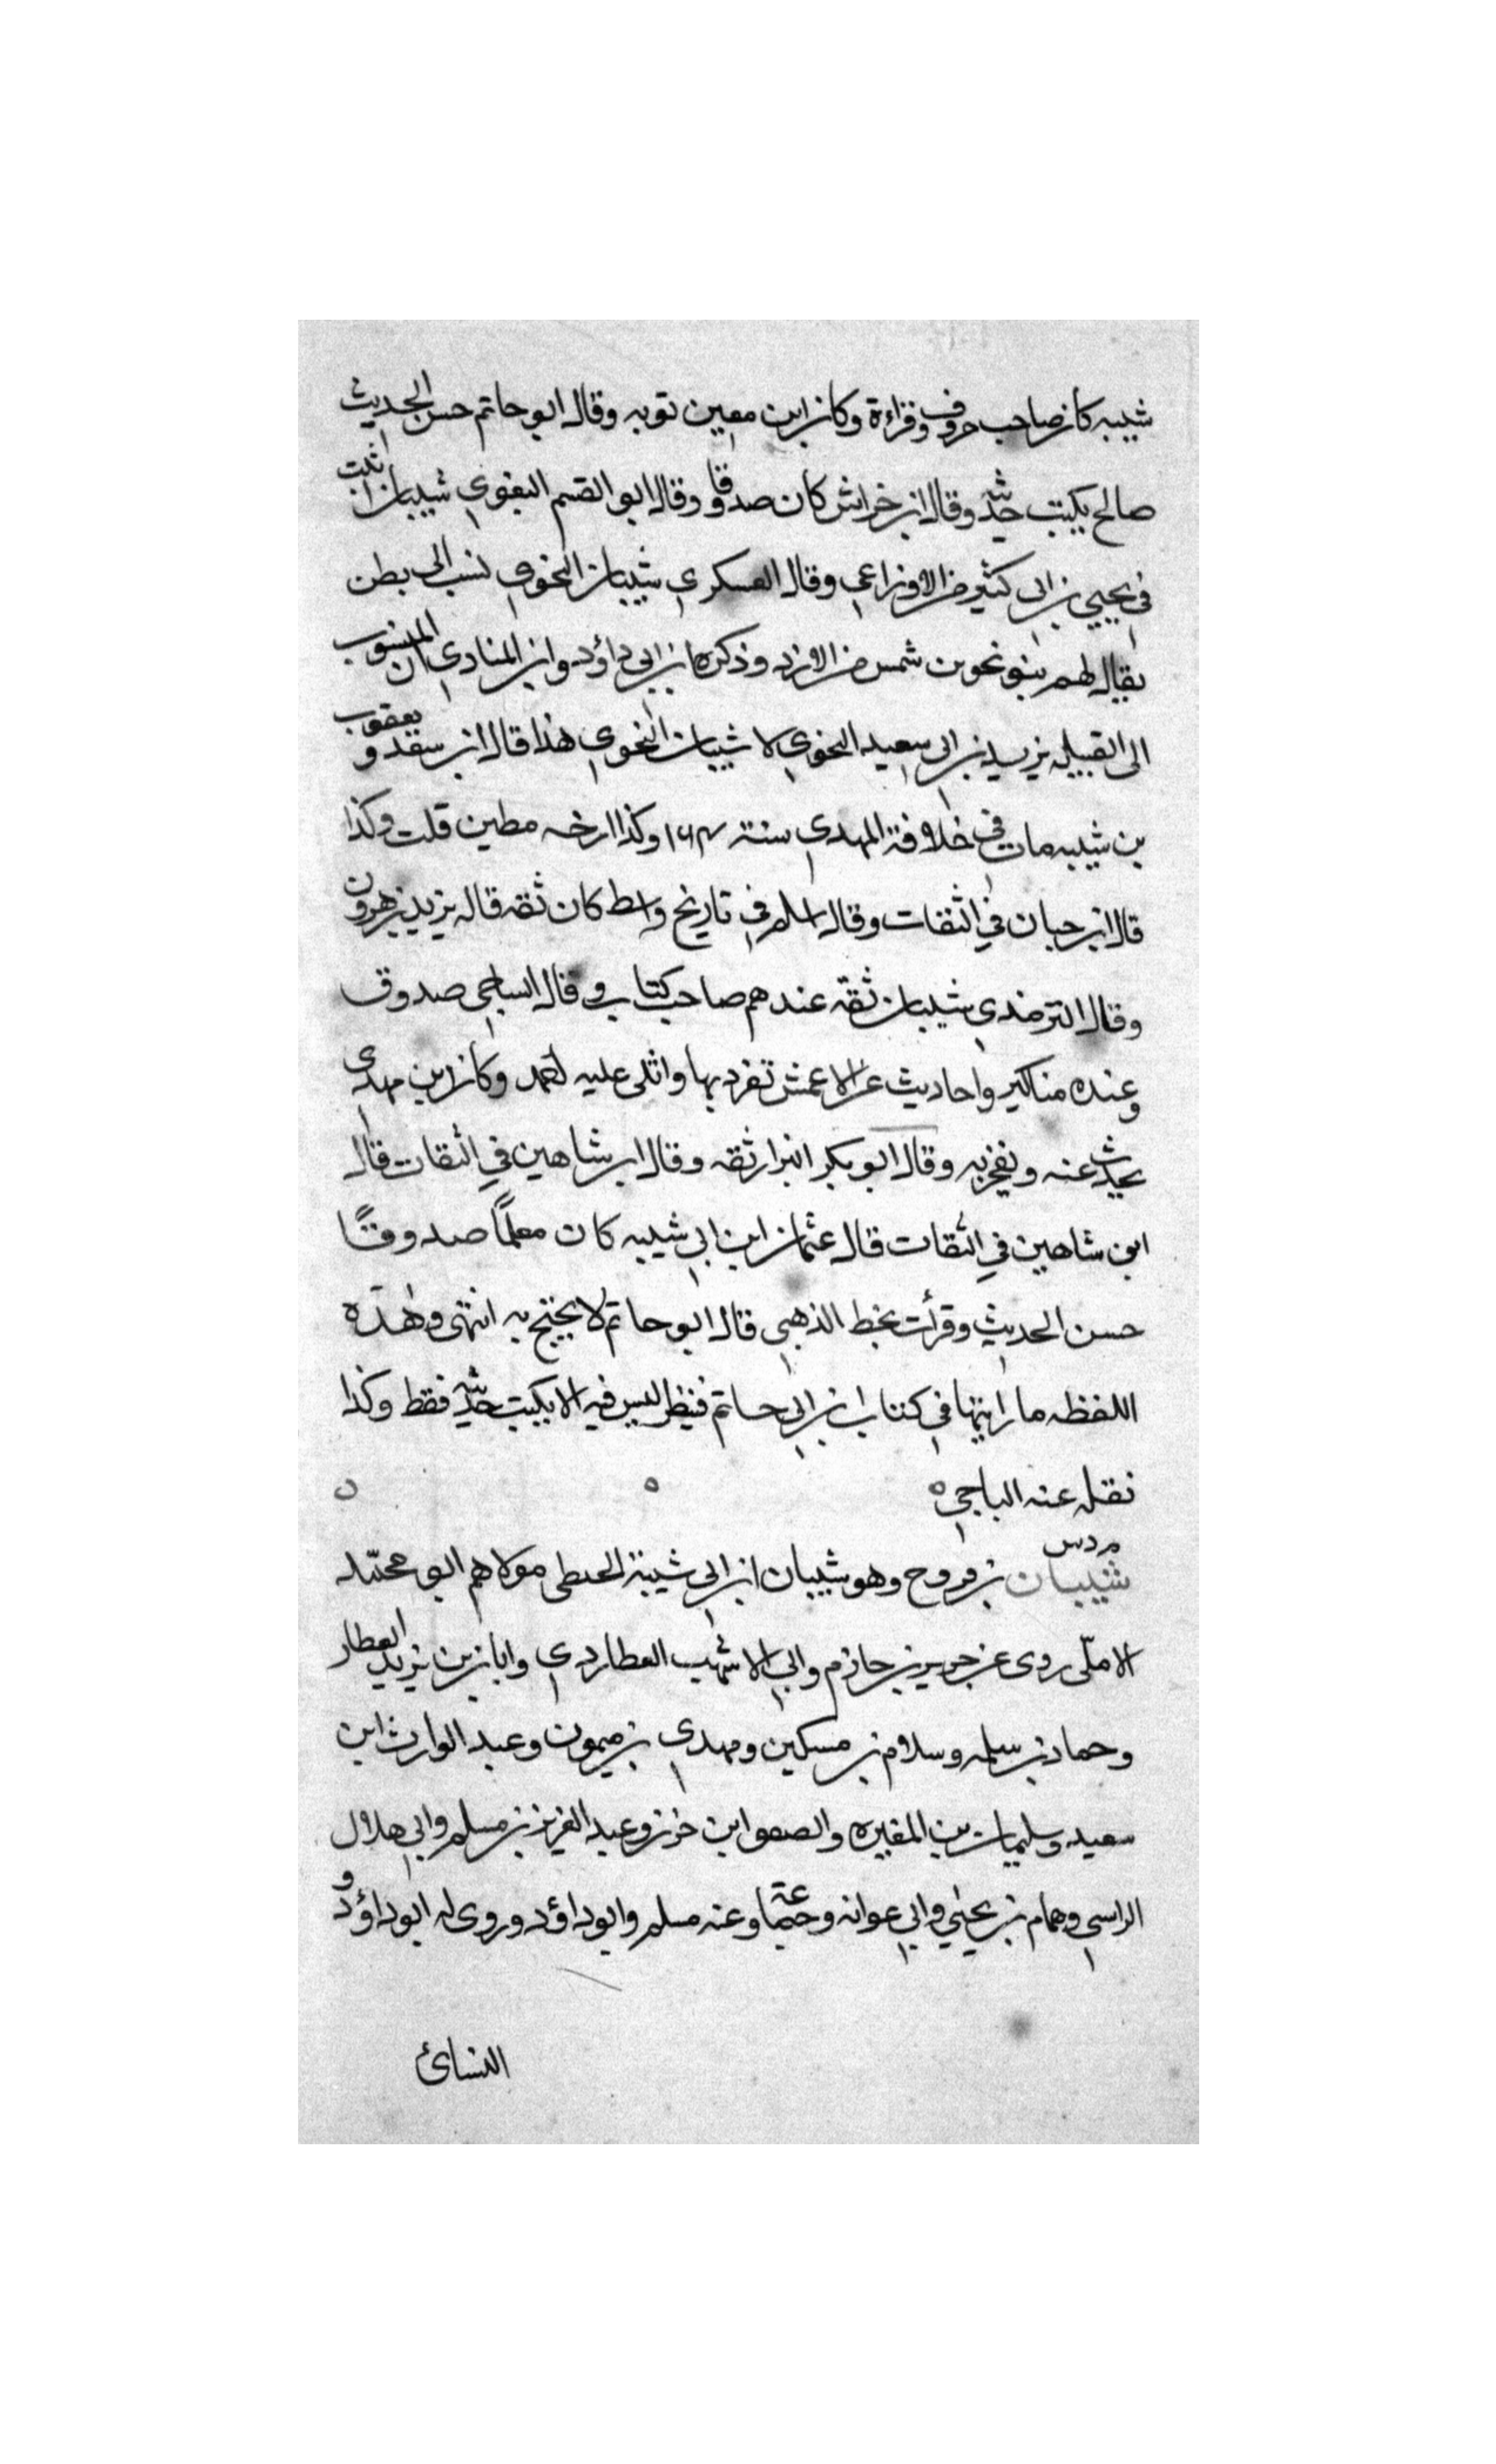 شيبه كان صاحب حروف وقراءة وكان ابن معين توبه وقال ابو حاتم حسن الحديث
صالح يكتب حديثه وقال ابن خراش كان صدوقا وقال ابو القسم البغوي شيبان اثبت
في يحيى بن ابي كثير من الاوزاعي وقال العسكري شيبان النحوي نسب الى بطن
يقال لهم بنو نحو بن شمس من الازد وذكر ابن ابي داؤد وابن المنادي ان المنسوب
الى القبيله يزيد بن ابي سعيد النحوي لا شيبان النحوي هذا قال ابن سعد و يعقوب
بن شيبه مات في خلافة المهدي سنة ١٦٤ وكذا ارخه مطين قلت وكذا
قال ابن حبان في الثقات وقال اسلم في تاريخ واسط كان ثقه قاله يزيد بن هرون
وقال الترمذي شيبان ثقة عندهم صاحب كتاب وقال الساجي صدوق
وعنده مناكير واحاديث عن الاعمش تفرد بها واثنى عليه احمد وكان ابن مهدي
يحدث عنه ويفخر به وقال ابو بكر البزار ثقه وقال ابن شاهين في الثقات قال
ابن شاهين في الثقات قال عثمان ابن ابي شيبه كان معلمًا صدوقًا
حسن الحديث وقرأت بخط الذهبي قال ابو حاتم لا يحتج به انتهى وهذه
اللفظه ما رايتها في كتاب ابن ابي حاتم فينظر ليس فيه الا يكتب حديثه فقط وكذا
نقله عنه الباجي ه ه ه
م د س
شيبان بن فروح وهو شيبان ابن ابي شيبة الحبطي مولاهم ابو محمّد
الاملّى روى عن جرير بن حازم وابي الاشهب العطاردي وابان بن يزيد العطار
وحماد بن سلمه وسلام بن مسكين ومهدي بن ميمون وعبد الوارث ابن
سعيد وسليمان بن المغيره والصعق ابن حزن وعبد العزيز بن مسلم وابي هلال
الراسبي وهمام بن يحيى وابي عوانه وجماعة وعنه مسلم وابو داؤد وروى له ابو داؤد و
النسائ